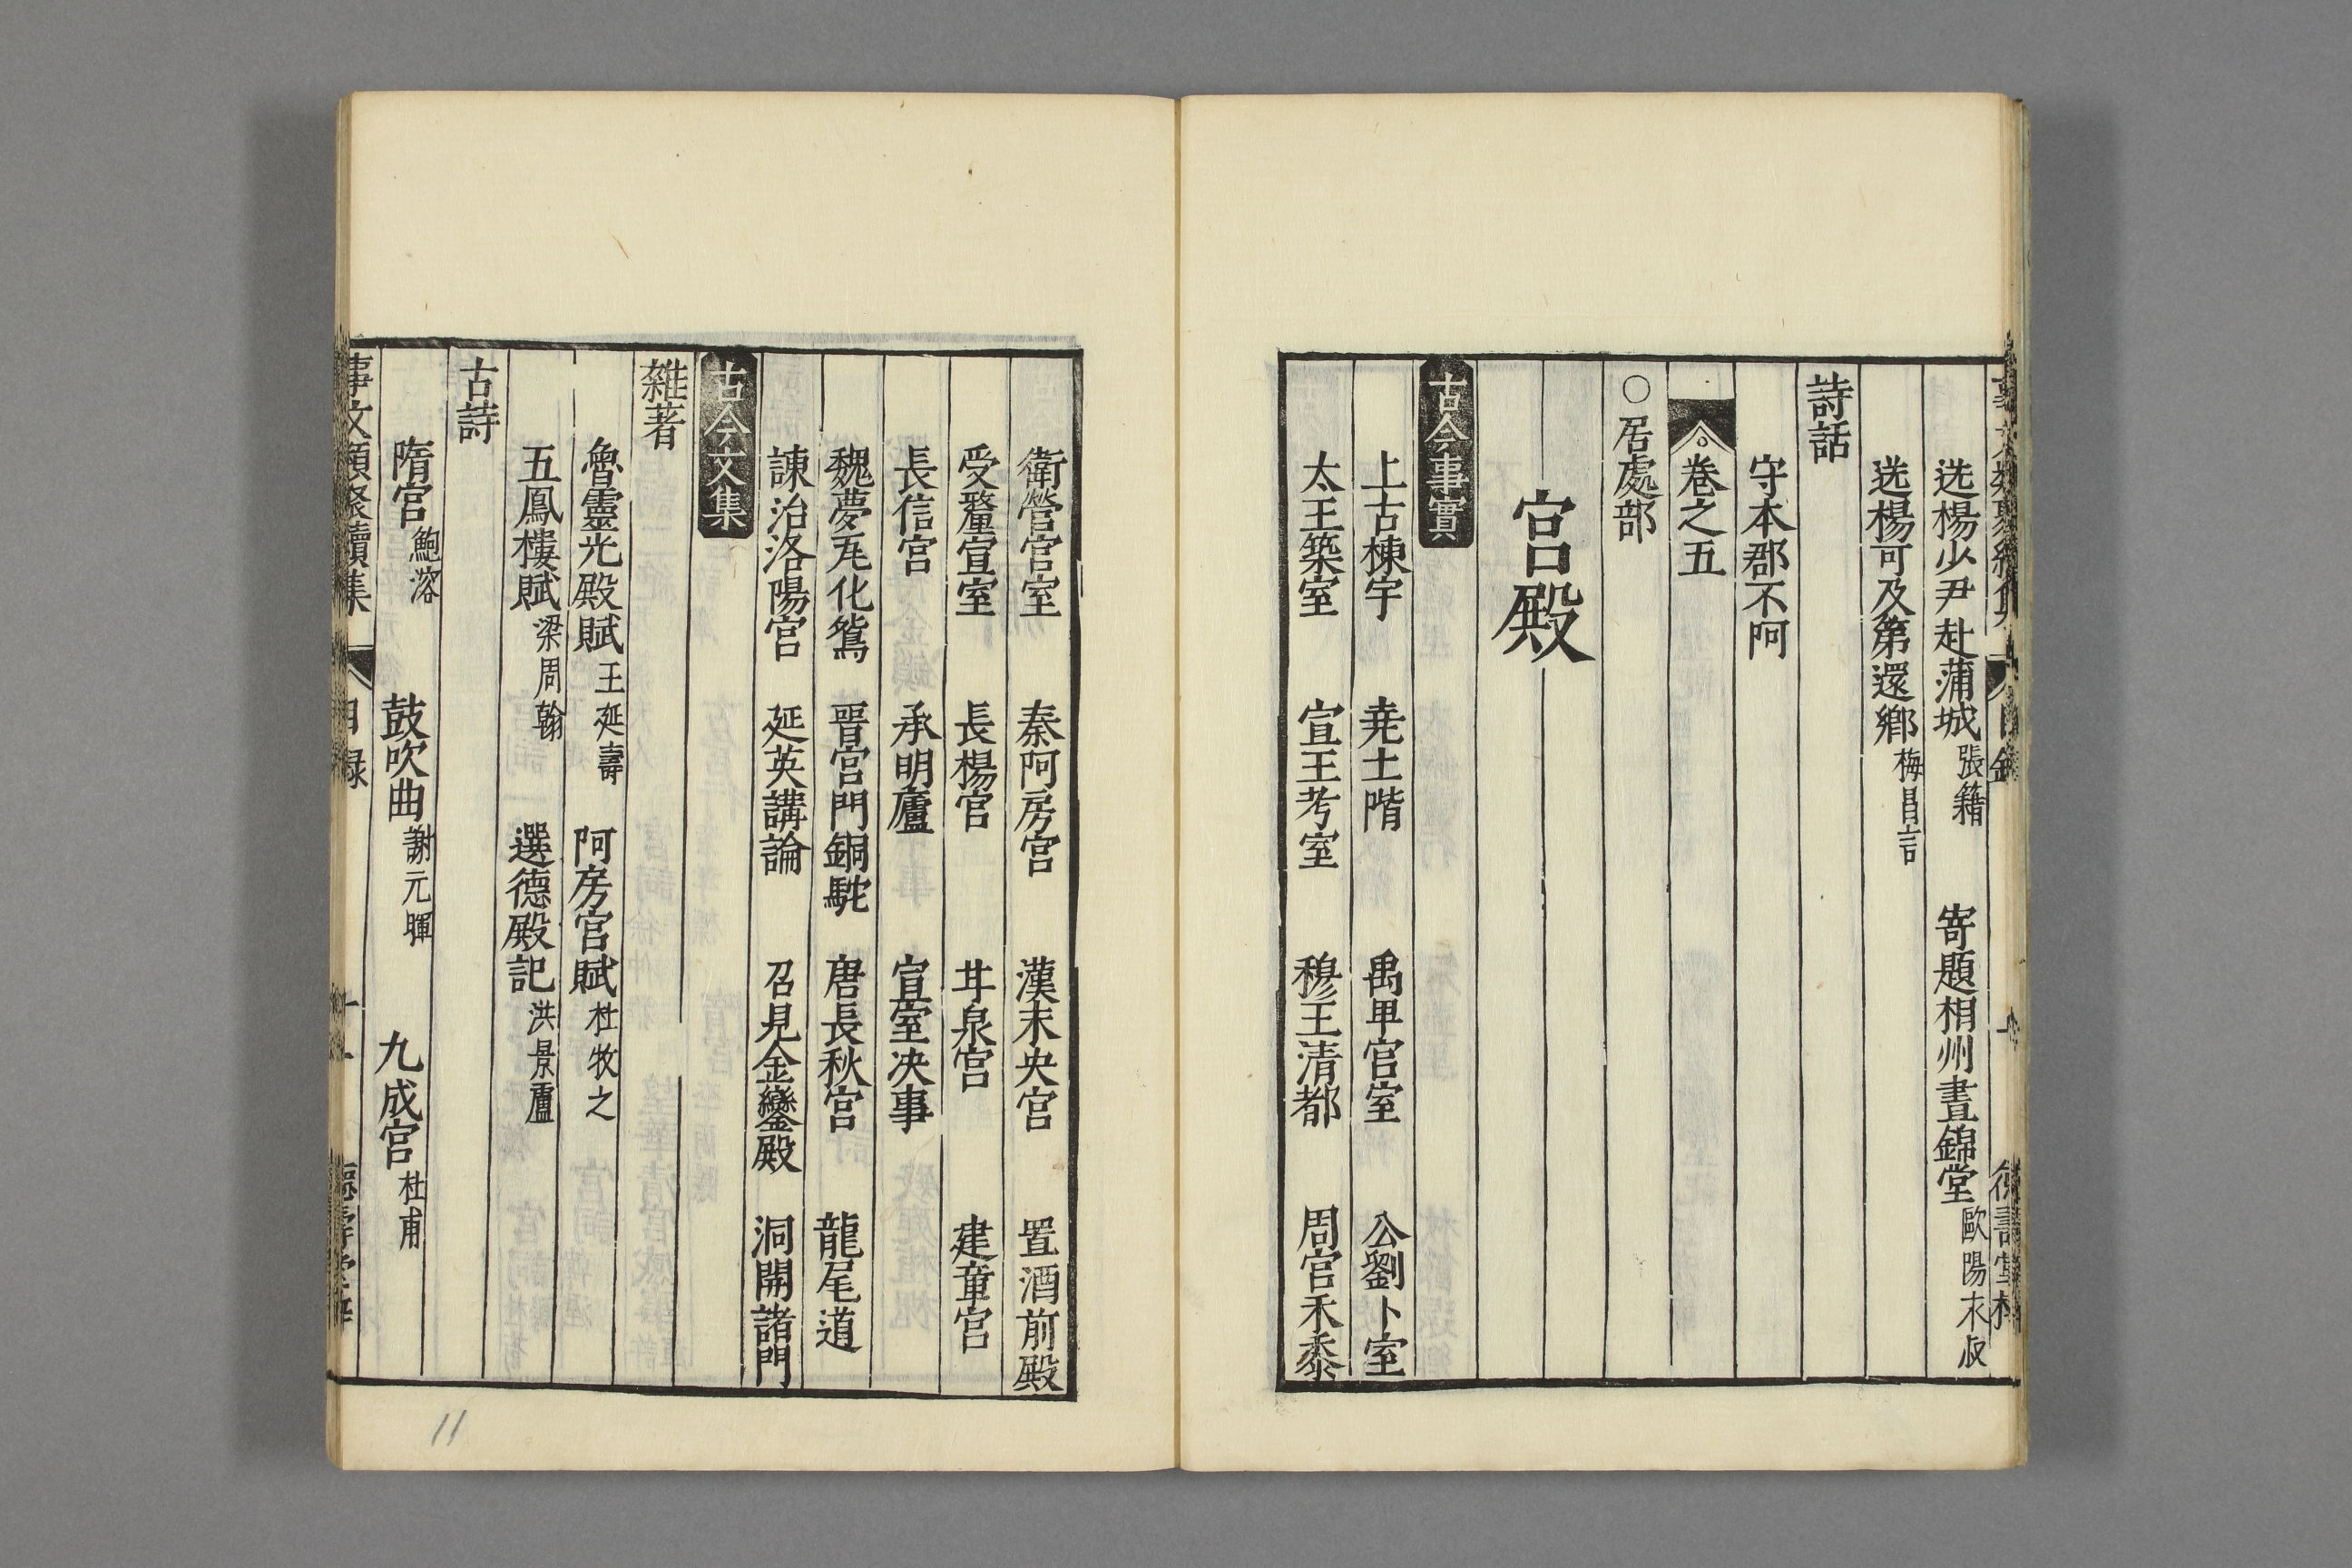 送楊少尹赴蒲城 張籍 寄題相州晝錦堂 歐陽永叔
送楊可及第還鄉 梅昌言
詩話
守本郡不阿
卷之五
○居處部
宮殿
古今事實
上古棟宇 堯土階 禹卑宮室 公劉卜室
太王築室 宣王考室 穆王清都 周宮禾黍
衛營宮室 秦阿房宮 漢未央宮 置酒前殿
受釐宣室 長楊宮 甘泉宮 建章宮
長信宮 承明廬 宣室决事
魏夢瓦化鴛 晋宮門銅駝 唐長秋宮 龍尾道
諫治洛陽宮 延英講論 召見金鑾殿 洞開諸門
古今文集
雜著
魯靈光殿賦 王延壽 阿房宮賦 杜牧之
五鳳樓賦 梁周翰 選德殿記 洪景盧
古詩
隋宮 鮑溶 鼓吹曲 謝元暉 九成宮 杜甫
事文類聚續集 目録 十一
11